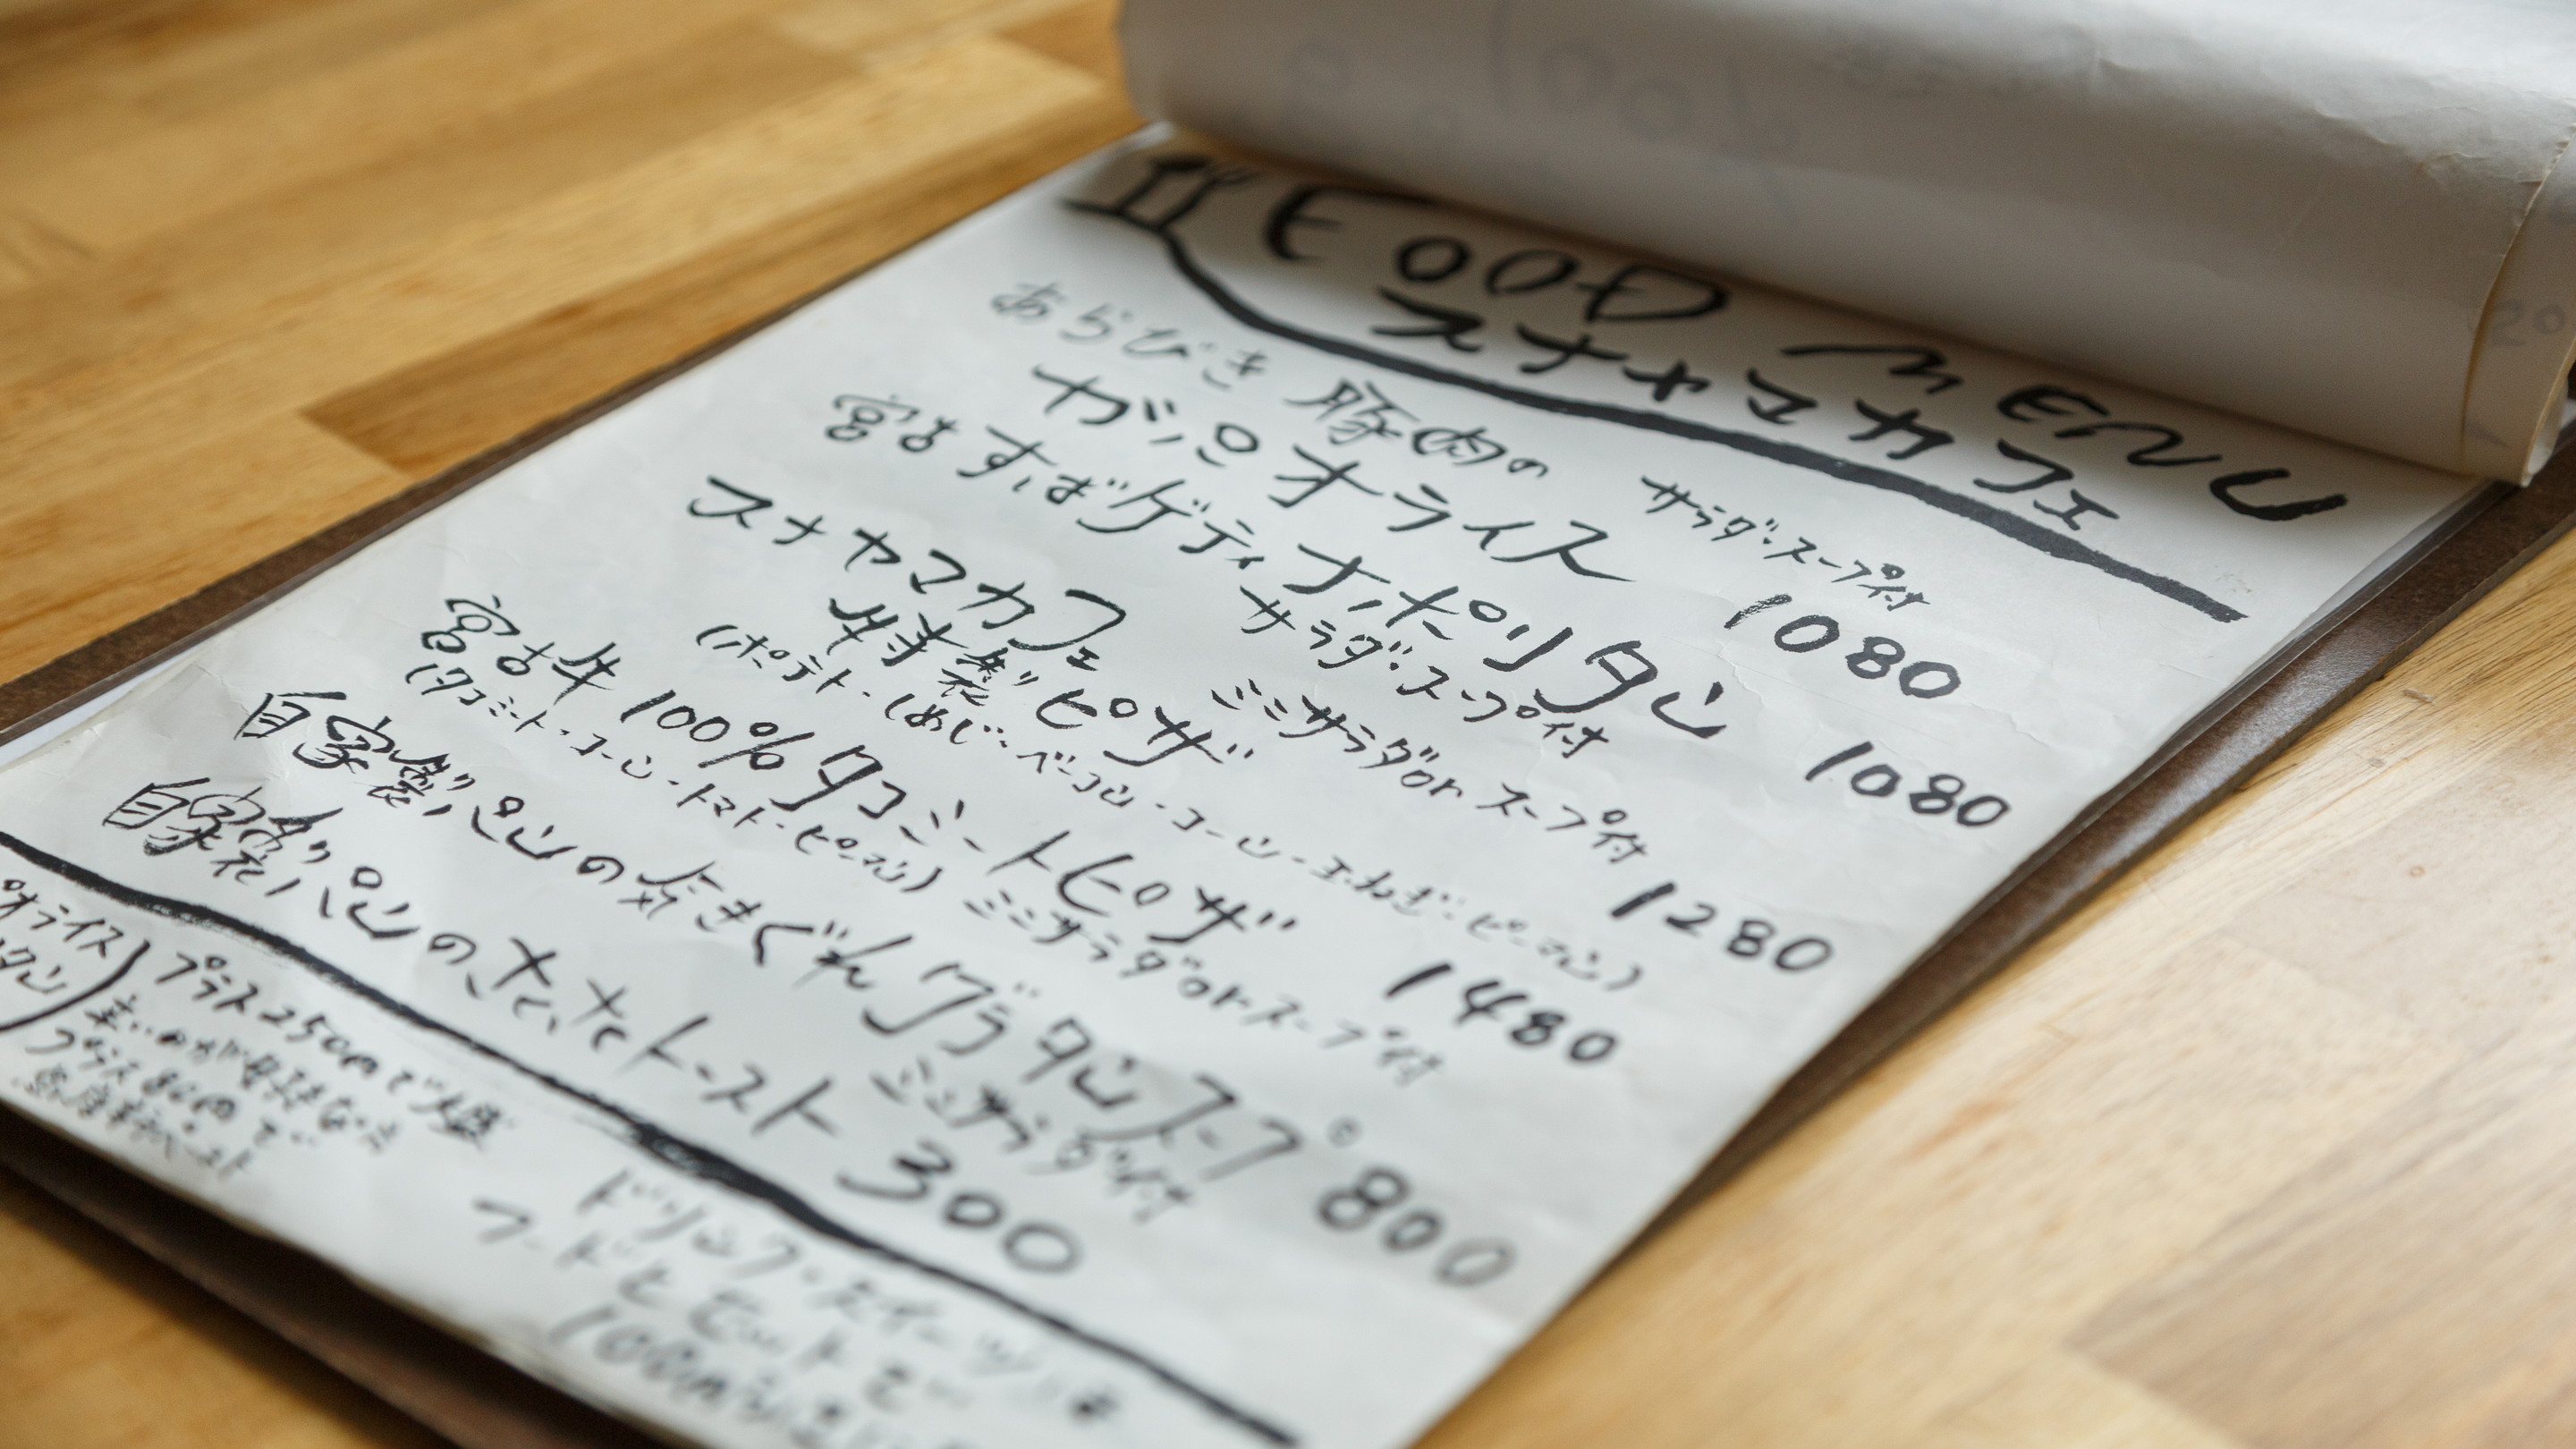 FOOD MENU
スナヤマカフェ
あらびき 豚肉の
ガパオライス サラダ・スープ付 1080
宮古すばゲティ ナポリタン
サラダ・スープ付 1080
スナヤマカフェ
特製ピザ ミニサラダor スープ付 1280
(ポテト・しめじ・ベーコン・コーン・玉ねぎ・ピーマン)
宮古牛 100% タコミートピザ 1480
(タコミート・コーン・トマト・ピーマン) ミニサラダorスープ付
自家製パンの気まぐれグラタンスープ
ミニサラダ付 800
自家製パンの トースト 300
オライス
タン) プラス250円で大盛
辛いのが好きな方
プラス 円で
ドリンク・スイーツは
フードとセットで
100円